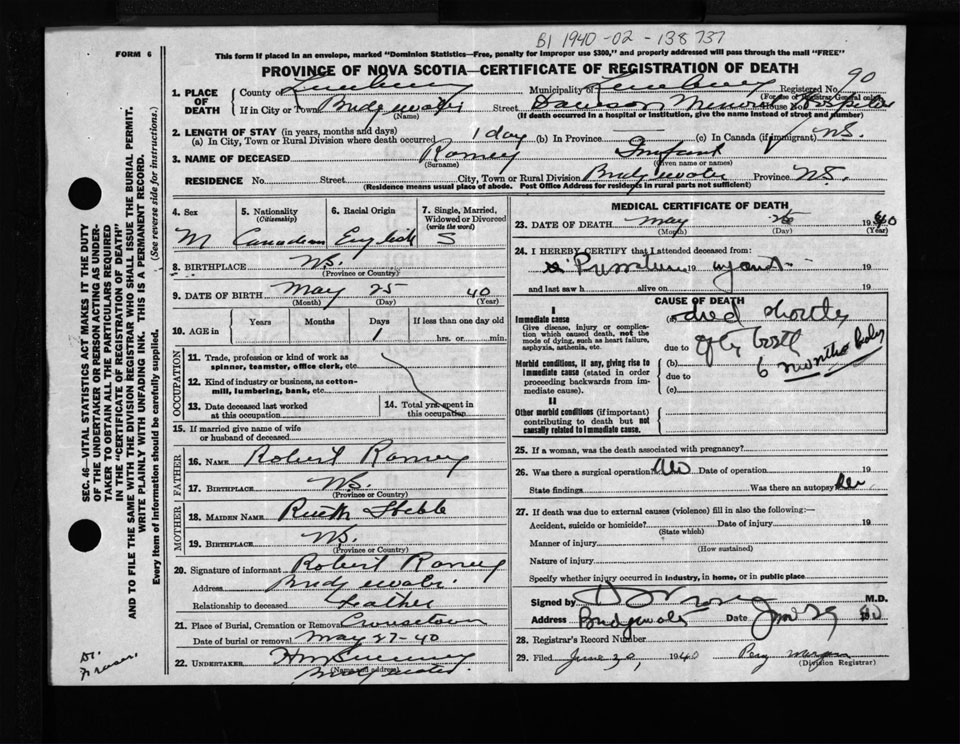 BJ 1940-02-138737
FORM 6
This form if placed in an envelope, marked "Dominion Statistics—Free, penalty for improper use $300," and properly addressed will pass through the mail "FREE"
PROVINCE OF NOVA SCOTIA—CERTIFICATE OF REGISTRATION OF DEATH
90
1. PLACE OF DEATH
County of Lunenburg Municipality of Lunenburg Registered No.
(For use of Registrar General only)
If in City or Town Bridgewater Street Dawson Memorial House No. Hospital
(Name) (If death occurred in a hospital or institution, give the name instead of street and number)
2. LENGTH OF STAY (in years, months and days)
(a) In City, Town or Rural Division where death occurred 1 day (b) In Province (c) In Canada (if immigrant) N.S.
3. NAME OF DECEASED Ramey Infant
(Surname) (Given name or names)
RESIDENCE No. Street City, Town or Rural Division Bridgewater Province N.S.
(Residence means usual place of abode. Post Office Address for residents in rural parts not sufficient)
4. Sex 5. Nationality (Citizenship) 6. Racial Origin 7. Single, Married, Widowed or Divorced (write the word)
M Canadian English S
8. BIRTHPLACE N.S.
(Province or Country)
9. DATE OF BIRTH May 25 40
(Month) (Day) (Year)
10. AGE in Years Months Days If less than one day old
1 hrs. or min.
OCCUPATION
11. Trade, profession or kind of work as spinner, teamster, office clerk, etc.
12. Kind of industry or business, as cotton-mill, lumbering, bank, etc.
13. Date deceased last worked at this occupation
14. Total yrs. spent in this occupation
15. If married give name of wife or husband of deceased
FATHER
16. NAME Robert Ramey
17. BIRTHPLACE N.S.
(Province or Country)
MOTHER
18. MAIDEN NAME Ruth
19. BIRTHPLACE N.S.
(Province or Country)
20. Signature of informant Robert Ramey
Address Bridgewater
Relationship to deceased Father
21. Place of Burial, Cremation or Removal Crousetown
Date of burial or removal May 27-40
22. UNDERTAKER
(Name and address)
Bridgewater
MEDICAL CERTIFICATE OF DEATH
23. DATE OF DEATH May 19 40
(Month) (Day) (Year)
24. I HEREBY CERTIFY that I attended deceased from:
19 19
and last saw h alive on 19
CAUSE OF DEATH
I
Immediate cause
Give disease, injury or complication which caused death, not the mode of dying, such as heart failure, asphyxia, asthenia, etc.
(a) died shortly
due to after birth
Morbid conditions, if any, giving rise to immediate cause (stated in order proceeding backwards from immediate cause).
(b) 6 months baby
due to
(c)
II
Other morbid conditions (if important) contributing to death but not causally related to immediate cause.
25. If a woman, was the death associated with pregnancy?
26. Was there a surgical operation No Date of operation 19
State findings Was there an autopsy
27. If death was due to external causes (violence) fill in also the following:—
Accident, suicide or homicide? Date of injury 19
(State which)
Manner of injury
(How sustained)
Nature of injury
Specify whether injury occurred in industry, in home, or in public place
Signed by M.D.
Address Bridgewater Date June 29 40
28. Registrar's Record Number
29. Filed June 30, 1940 Percy
(Division Registrar)
SEC. 46—VITAL STATISTICS ACT MAKES IT THE DUTY
OF THE UNDERTAKER OR PERSON ACTING AS UNDERTAKER
TO OBTAIN ALL THE PARTICULARS REQUIRED
IN THE "CERTIFICATE OF REGISTRATION OF DEATH"
AND TO FILE THE SAME WITH THE DIVISION REGISTRAR WHO SHALL ISSUE THE BURIAL PERMIT.
WRITE PLAINLY WITH UNFADING INK. THIS IS A PERMANENT RECORD.
Every item of information should be carefully supplied. (See reverse side for instructions.)
Dr.
Fraser.